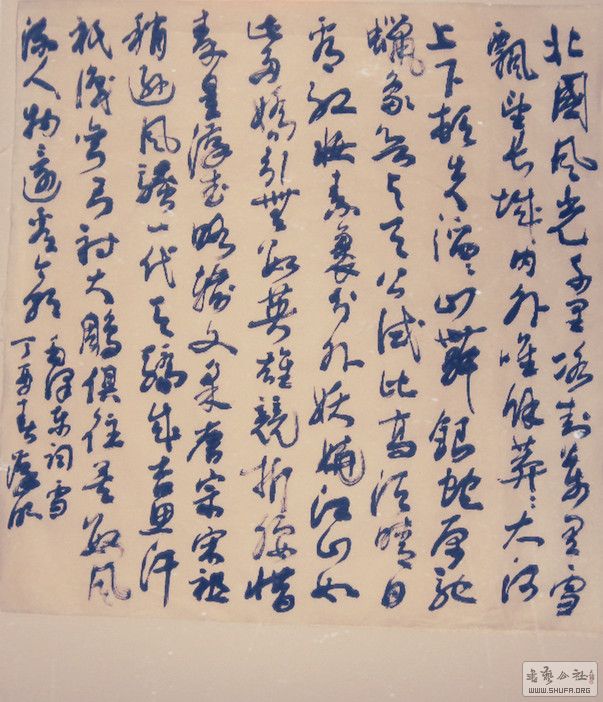 北國風光千里冰封萬里雪
飄望長城內外唯餘莽〻大河
上下頓失滔〻山舞銀蛇原馳
蠟象欲与天公试比高須晴日
看紅妝素裹分外妖嬈江山如
此多嬌引無數英雄競折腰惜
秦皇漢武略輸文采唐宗宋祖
稍遜風騷一代天驕成吉思汗
祇識彎弓射大鵰俱往矣數風
流人物還看今朝
毛澤東詞雪
書藝公社
WWW.SHUFA.ORG